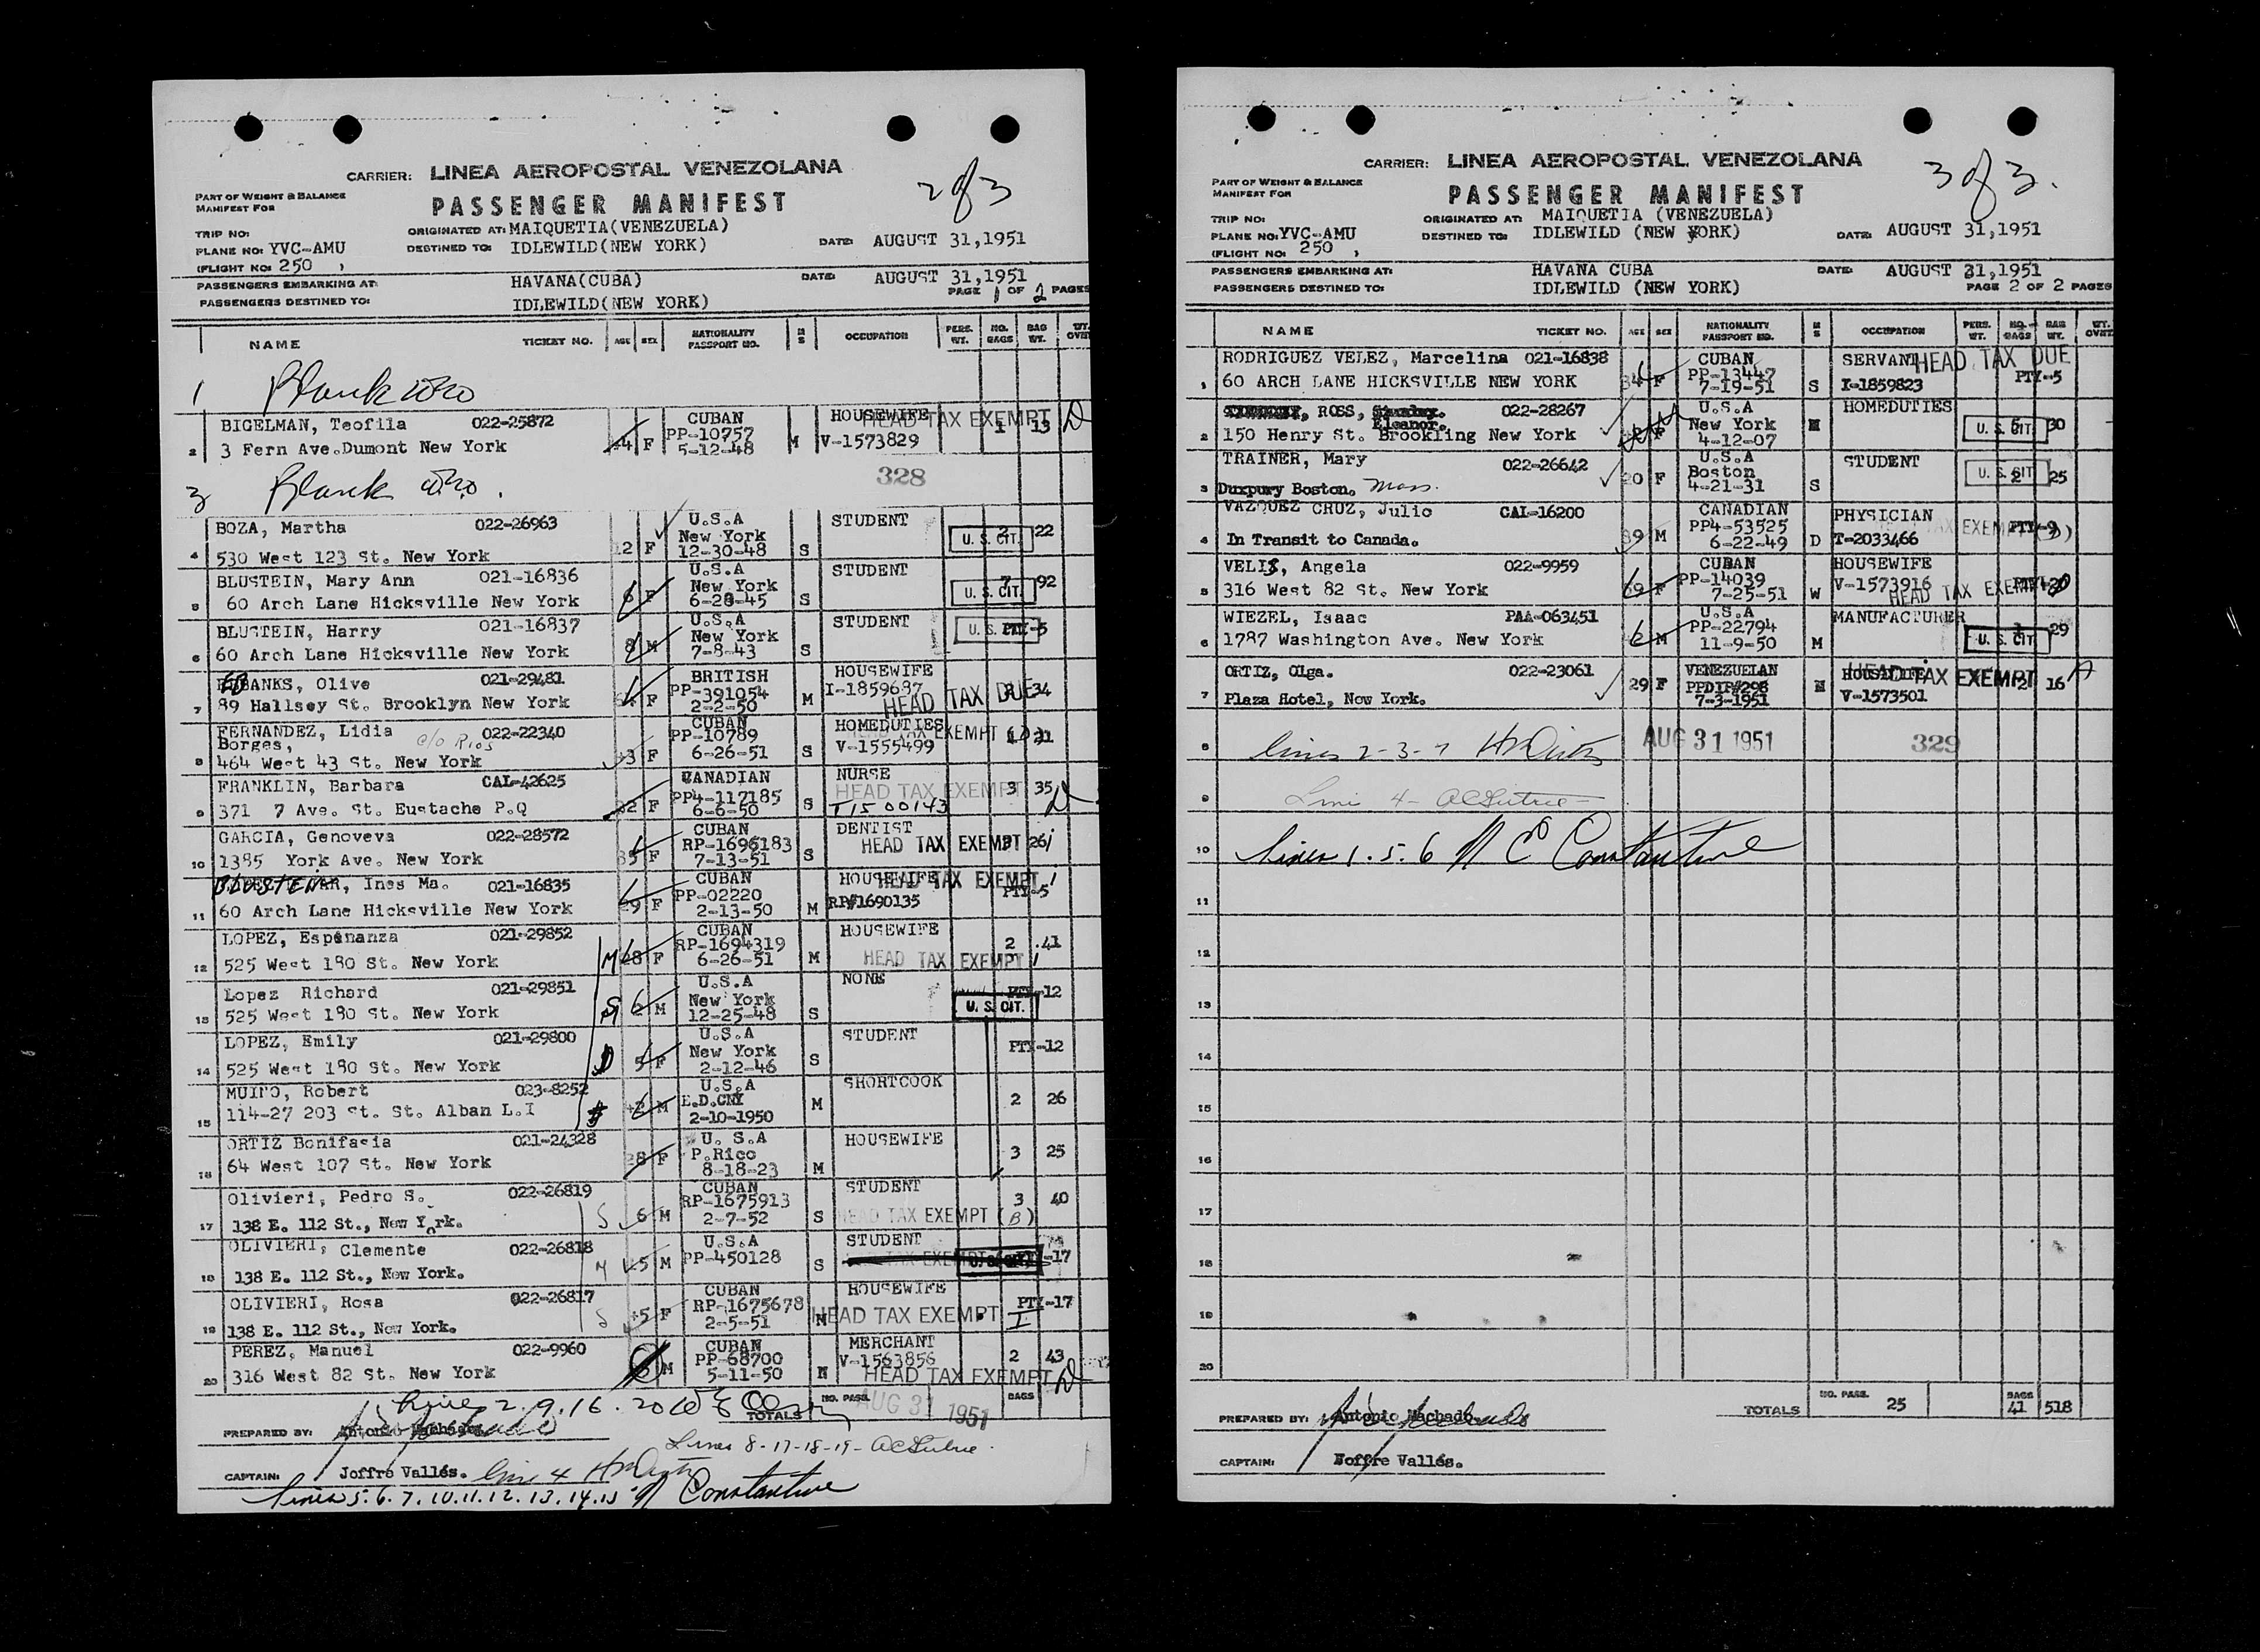 CARRIER: LINEA AEROPOSTAL VENEZOLANA
2 of 3
PART OF WEIGHT & BALANCE
MANIFEST FOR
PASSENGER MANIFEST
TRIP NO:
ORIGINATED AT: MAIQUETIA(VENEZUELA)
PLANE NO: YVC-AMU
DESTINED TO: IDLEWILD(NEW YORK)
DATE: AUGUST 31,1951
(FLIGHT NO: 250 )
PASSENGERS EMBARKING AT: HAVANA(CUBA)
DATE: AUGUST 31,1951
PAGE 1 OF 2 PAGES
PASSENGERS DESTINED TO: IDLEWILD(NEW YORK)
NAME TICKET NO. AGE SEX NATIONALITY PASSPORT NO. M S OCCUPATION PERS. WT. NO. BAGS BAG WT. WT. OVER
1 Blank
BIGELMAN, Teofila 022-25872 CUBAN HOUSEWIFE HEAD TAX EXEMPT
PP-10757 1 13
2 3 Fern Ave.Dumont New York 44 F 5-12-48 M V-1573829
3 Blank
328
BOZA, Martha 022-26963 U.S.A STUDENT
New York U. S. CIT. 2 22
4 530 West 123 St. New York 12 F 12-30-48 S
BLUSTEIN, Mary Ann 021-16836 U.S.A STUDENT
New York U. S. CIT. 7 92
5 60 Arch Lane Hicksville New York 6 F 6-28-45 S
BLUSTEIN, Harry 021-16837 U.S.A STUDENT
New York U. S. CIT. PTY-5
6 60 Arch Lane Hicksville New York 8 M 7-8-43 S
EUBANKS, Olive 021-29481 BRITISH HOUSEWIFE
PP-391054 I-1859687 HEAD TAX DUE 34
7 89 Hallsey St. Brooklyn New York F 2-2-50 M
FERNANDEZ, Lidia 022-22340 CUBAN HOMEDUTIES
Borges, c/o Rios PP-10789 V-1555499 HEAD TAX EXEMPT 21
8 464 West 43 St. New York 43 F 6-26-51 S
FRANKLIN, Barbara CAL-42625 CANADIAN NURSE
PP4-117185 HEAD TAX EXEMPT 3 35
9 371 7 Ave. St. Eustache P.Q F 6-6-50 S T1500143
GARCIA, Genoveva 022-28572 CUBAN DENTIST
RP-1696183 HEAD TAX EXEMPT 26
10 1385 York Ave. New York 35 F 7-13-51 S
BLUSTEIN, Ines Ma. 021-16835 CUBAN HOUSEWIFE HEAD TAX EXEMPT
PP-02220 PTY-5
11 60 Arch Lane Hicksville New York 29 F 2-13-50 M RP#1690135
LOPEZ, Espenanza 021-29852 CUBAN HOUSEWIFE
RP-1694319 2 41
12 525 West 180 St. New York M 28 F 6-26-51 M HEAD TAX EXEMPT
Lopez Richard 021-29851 U.S.A NONE
New York PTY-12
13 525 West 180 St. New York S 2 M 12-25-48 S U. S. CIT.
LOPEZ, Emily 021-29800 U.S.A STUDENT
New York PTY-12
14 525 West 180 St. New York D 5 F 2-12-46 S
MUIÑO, Robert 023-8252 U.S.A SHORTCOOK
E.D.CNY 2 26
15 114-27 203 St. St. Alban L.I 42 M 2-10-1950 M
ORTIZ Bonifasia 021-24328 U. S.A HOUSEWIFE
P.Rico 3 25
16 64 West 107 St. New York 28 F 8-18-23 M
Olivieri, Pedro S. 022-26819 CUBAN STUDENT
RP-1675913 3 40
17 138 E. 112 St., New York. S 6 M 2-7-52 S HEAD TAX EXEMPT (B)
OLIVIERI, Clemente 022-26818 U.S.A STUDENT
PP-450128 PTY-17
18 138 E. 112 St., New York. M 45 M S
OLIVIERI, Rosa 022-26817 CUBAN HOUSEWIFE
RP-1675678 PTY-17
19 138 E. 112 St., New York. S 45 F 2-5-51 M HEAD TAX EXEMPT I
PEREZ, Manuel 022-9960 CUBAN MERCHANT
PP-68700 V-1563856 2 43
20 316 West 82 St. New York M 5-11-50 HEAD TAX EXEMPT
Line 2.9.16.20
NO. PASS. AUG 31 1951 BAGS
TOTALS
PREPARED BY: Antonio Machado
Lines 8-17-18-19-
CAPTAIN: Joffre Vallés. Line 4
Lines 5.6.7.10.11.12.13.14.15 N Constantine
CARRIER: LINEA AEROPOSTAL VENEZOLANA
3 of 3.
PART OF WEIGHT & BALANCE
MANIFEST FOR
PASSENGER MANIFEST
TRIP NO:
ORIGINATED AT: MAIQUETIA (VENEZUELA)
PLANE NO: YVC-AMU
DESTINED TO: IDLEWILD (NEW YORK)
DATE: AUGUST 31,1951
(FLIGHT NO: 250 )
PASSENGERS EMBARKING AT: HAVANA CUBA
DATE: AUGUST 31,1951
PASSENGERS DESTINED TO: IDLEWILD (NEW YORK)
PAGE 2 OF 2 PAGES
NAME TICKET NO. AGE SEX NATIONALITY PASSPORT NO. M S OCCUPATION PERS. WT. NO. BAGS BAG WT. WT. OVER
RODRIGUEZ VELEZ, Marcelina 021-16838 CUBAN SERVANT HEAD TAX DUE
PP-13447 PTY-5
1 60 ARCH LANE HICKSVILLE NEW YORK 34 F 7-19-51 S I-1859823
ROSS, Eleanor. 022-28267 U.S.A HOMEDUTIES
New York U. S. CIT. 30
2 150 Henry St. Brookling New York F 4-12-07
TRAINER, Mary 022-26642 U.S.A STUDENT
Boston U. S. CIT. 2 25
3 Duxpury Boston. Mass. 20 F 4-21-31 S
VAZQUEZ CRUZ, Julio CAL-16200 CANADIAN PHYSICIAN
PP4-53525 TAX EXEMPT PTY-9
4 In Transit to Canada. 39 M 6-22-49 D T-2033466
VELIS, Angela 022-9959 CUBAN HOUSEWIFE
PP-14039 V-1573916 PTY-20
5 316 West 82 St. New York 69 F 7-25-51 W HEAD TAX EXEMPT
WIEZEL, Isaac PAA-063451 U.S.A MANUFACTURER
PP-22794 1 29
6 1787 Washington Ave. New York M 11-9-50 M U. S. CIT.
ORTIZ, Olga. 022-23061 VENEZUELAN HOUSEWIFE HEAD TAX EXEMPT
PPDIP#298 2 16
7 Plaza Hotel, New York. 29 F 7-3-1951 V-1573501
8 Lines 2-3-7
AUG 31 1951
329
9 Line 4-
10 Lines 1.5.6 N C Constantine
11
12
13
14
15
16
17
18
19
20
NO. PASS. 25 BAGS 41 518
TOTALS
PREPARED BY: Antonio Machado
CAPTAIN: Joffre Vallés.